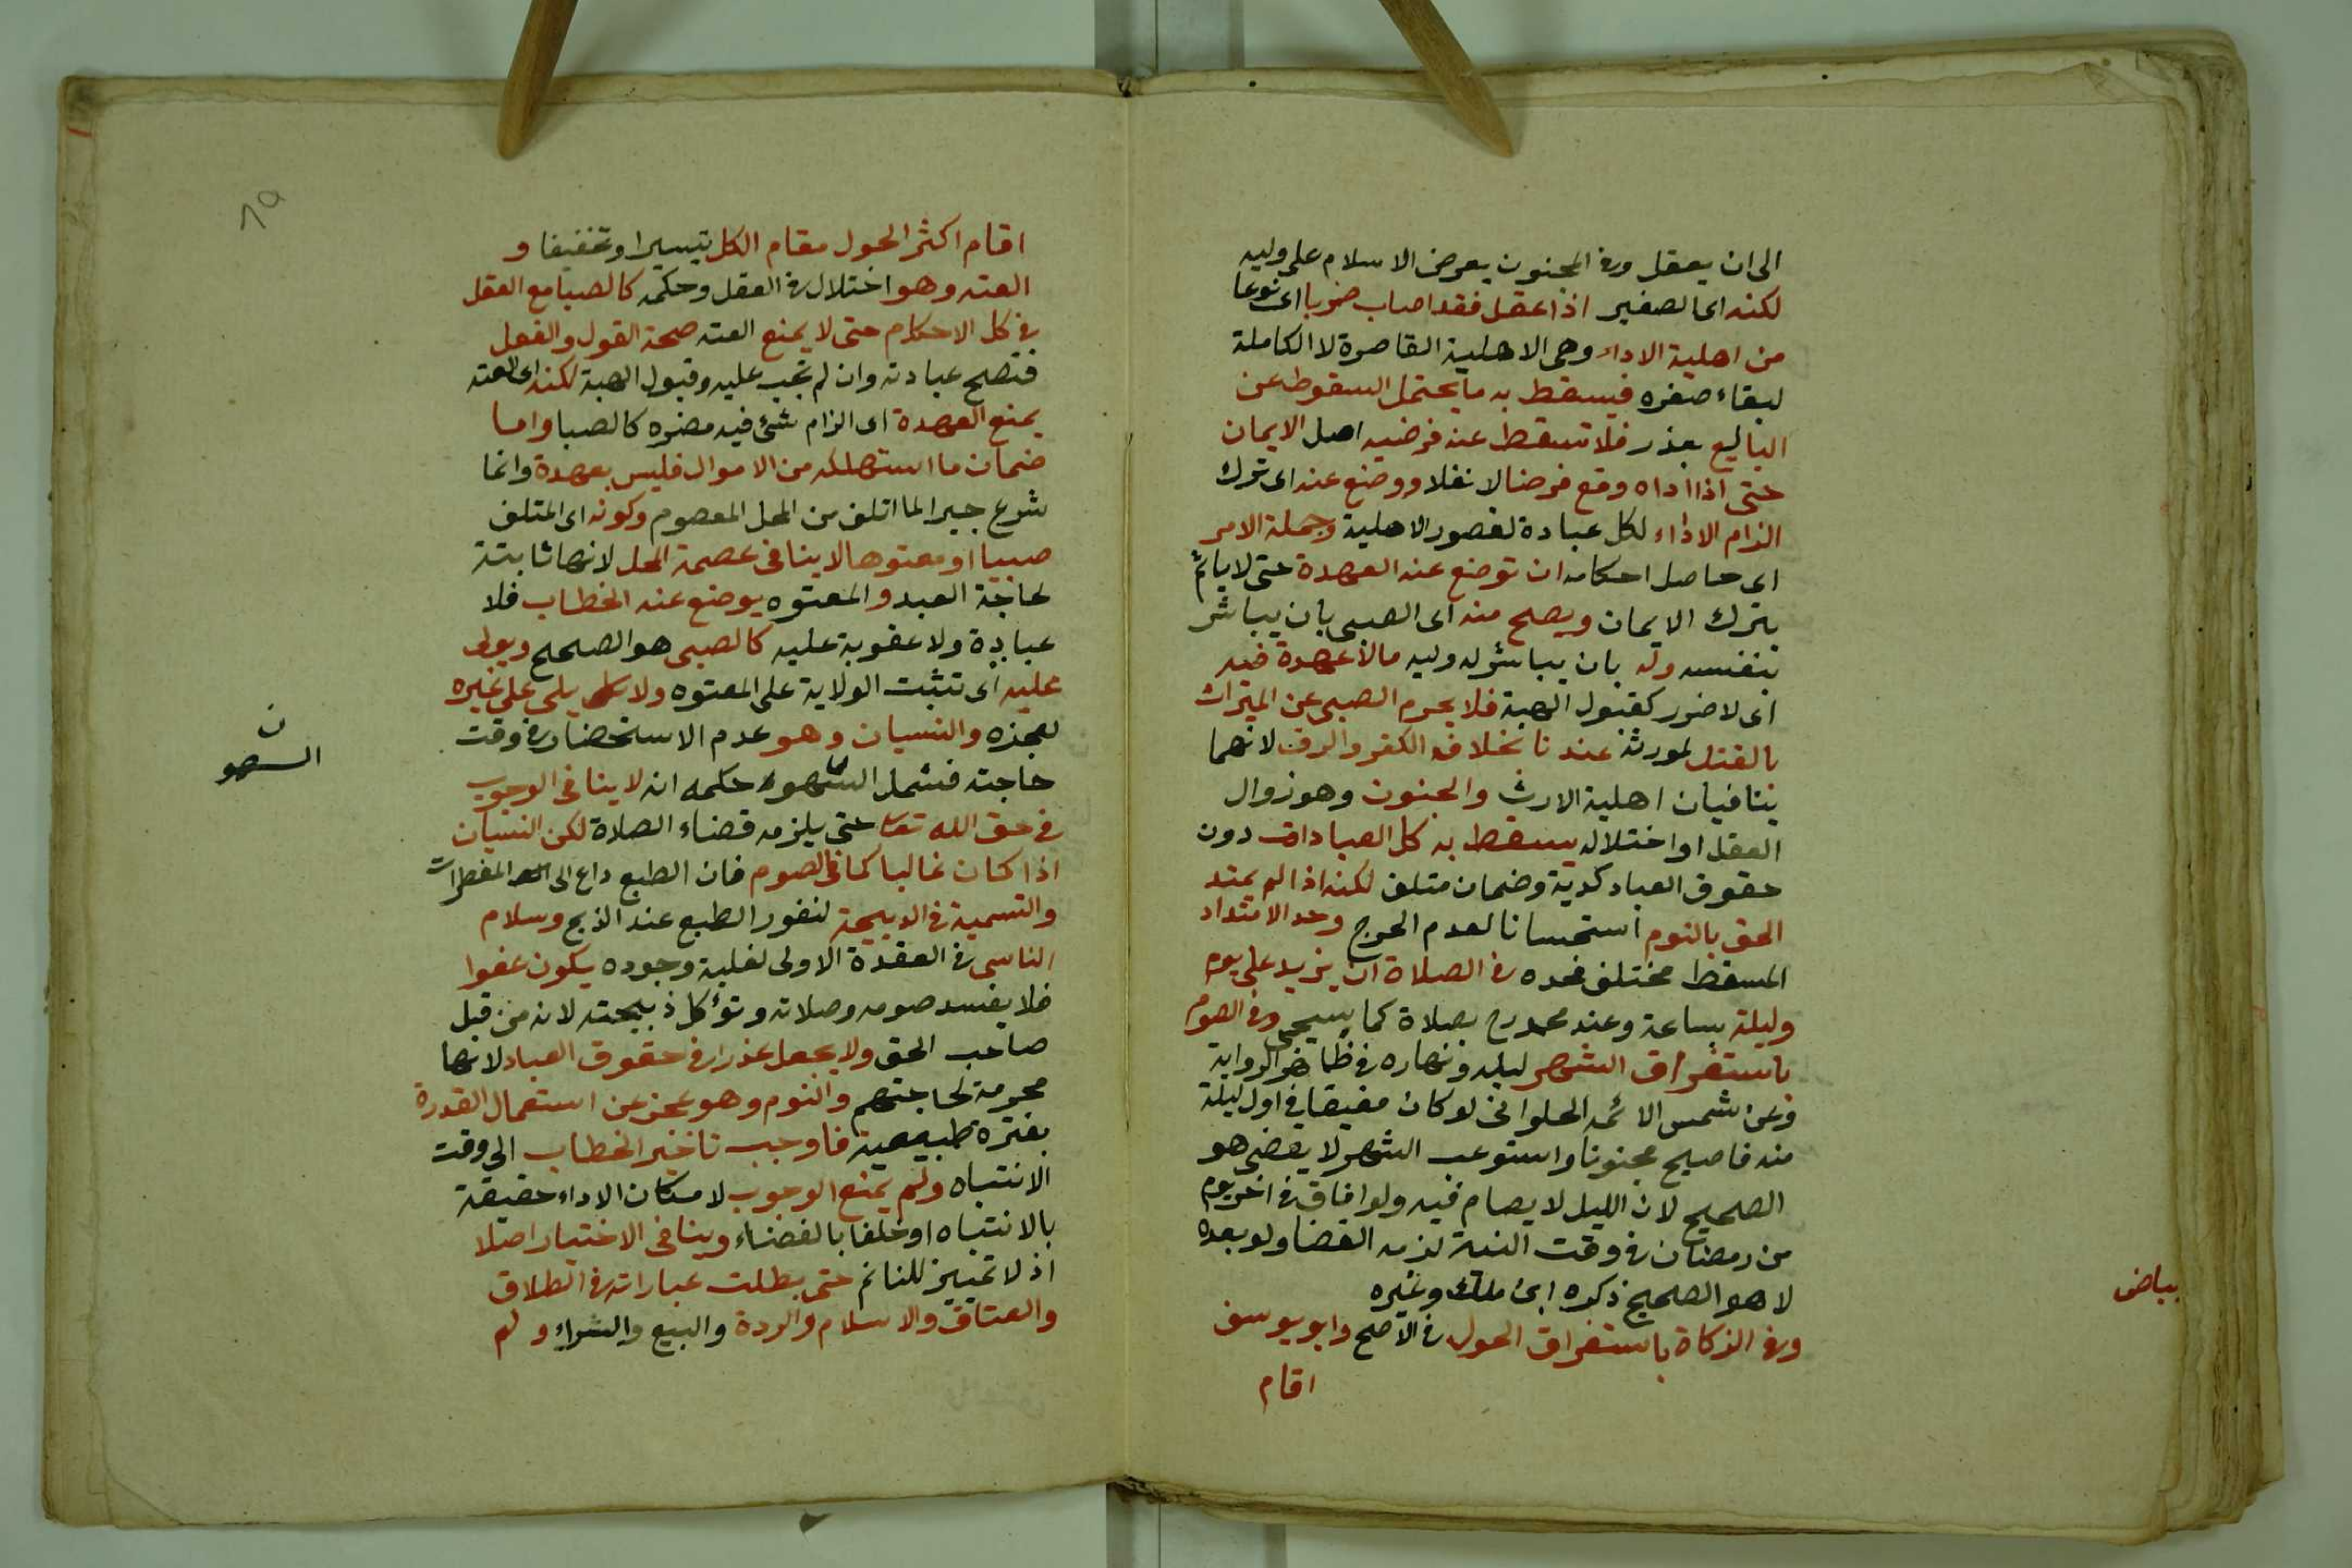 الى ان يعقل وفى المجنون يعرض الاسلام على وليه
لكنه اى الصغير اذا عقل فقد اصاب ضربا اى نوعا
من اهلية الاداء وهى الاهلية القاصرة لا الكاملة
لبقاء صغره فيسقط به ما يحتمل السقوط عن
البالغ بعذر فلا تسقط عنه فرضيه اصل الايمان
حتى اذا اداه وقع فرضا لا نفلا ووضع عنه اى ترك
الزام الاداء لكل عبادة لقصور الاهلية وجملة الامر
اى حاصل احكامه ان توضع عنه العهدة حتى لا يأثم
بترك الايمان ويصح منه اى الصبى بان يباشر
بنفسه وله بان يباشر له وليه مالا عهدة فيه
اى لا ضرر كقبول الهبة فلا يحرم الصبى عن الميراث
بالقتل لمورثه عندنا بخلاف الكفر والرق لانهما
ينافيان اهلية الارث والجنون وهو زوال
العقل او اختلاله يسقط به كل العبادات دون
حقوق العباد كدية وضمان متلف لكنه اذا لم يمتد
الحق بالنوم استحسانا لعدم الحرج وحد الامتداد
المسقط مختلف فحده فى الصلاة ان يزيد على يوم
وليلة بساعة وعند محمد رح بصلاة كما يسيجى وفى الصوم
باستغراق الشهر ليله ونهاره فى ظاهر الرواية
وعن شمس الائمه الحلوانى لو كان مفيقا فى اول ليلة
منه فاصبح مجنونا واستوعب الشهر لا يقضى هو
الصحيح لان الليل لا يصام فيه ولو افاق فى اخر يوم
من رمضان فى وقت النية لزمه القضا ولو بعده
لا هو الصحيح ذكره ابن ملك وغيره
وفى الزكاة باستغراق الحول فى الاصح وابو يوسف
اقام
بياض
١٩
اقام اكثر الحول مقام الكل تيسيرا وتخفيفا و
العته وهو اختلال فى العقل وحكمه كالصبا مع العقل
فى كل الاحكام حتى لا يمنع العته صحة القول والفعل
فتصح عبادته وان لم تجب عليه وقبول الهبة لكنه اى العته
يمنع العهدة اى الزام شئ فيه مضره كالصبا واما
ضمان ما استهلكه من الاموال فليس بعهدة وانما
شرع جبرا لما اتلف من المحل المعصوم وكونه اى المتلف
صبيا او معتوها لا ينافى عصمة المحل لانها ثابتة
لحاجة العبد والمعتوه يوضع عنه الخطاب فلا
عبادة ولا عقوبة عليه كالصبى هو الصحيح ويولى
عليه اى تثبت الولاية على المعتوه ولا يلى على غيره
لعجزه والنسيان وهو عدم الاستحضار فى وقت
حاجته فشمل السهو حكمه انه لا ينافى الوجوب
فى حق الله تعا حتى يلزمه قضاء الصلاة لكن النسيان
اذا كان غالبا كما فى الصوم فان الطبع داع الى المفطرات
والتسمية فى الذبيحة لنفور الطبع عند الذبح وسلام
الناسى فى العقدة الاولى لغلبة وجوده يكون عفوا
فلا يفسد صومه وصلاته وتؤكل ذبيحته لانه من قبل
صاحب الحق ولا يجعل عذرا فى حقوق العباد لانها
محرمة لحاجتهم والنوم وهو عجز عن استعمال القدرة
بفترة طبيعية فاوجب تاخير الخطاب الى وقت
الانتباه ولم يمنع الوجوب لامكان الاداء حقيقة
بالانتباه او خلفا بالقضاء وينافى الاختيار اصلا
اذ لا تمييز للنائم حتى بطلت عباراته فى الطلاق
والعتاق والاسلام والردة والبيع والشراء ولم
ن
السهو